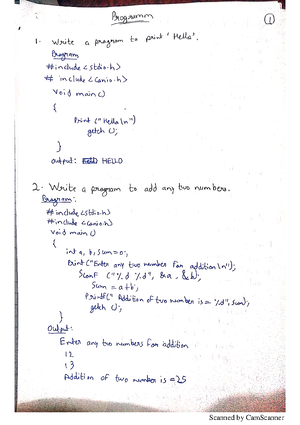 Programm
1
1. Write a program to print 'Hello'.
Program
#include<stdio.h>
# include<conio.h>
Void main()
{
Print ("Hello\n")
getch ();
}
output: HELLO
2. Write a program to add any two numbers.
Program:
#include<stdio.h>
#include<conio.h>
Void main()
{
int a, b, sum=0;
Print("Enter any two number for addition\n");
ScanF ("%d %d", &a, &b);
Sum = a+b;
Printf(" Addition of two number is=%d", sum);
getch ();
}
Output:
Enter any two numbers for addition
12
13
Addition of two number is =25
Scanned by CamScanner